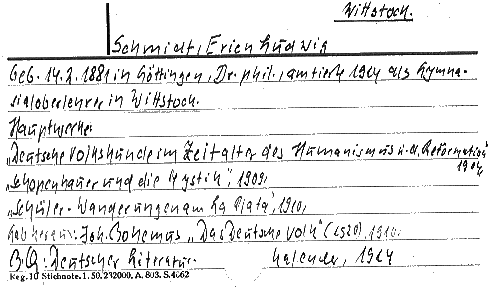 Wittstock.
Schmidt, Erich Ludwig
Geb. 14.2.1881 in Göttingen, Dr. phil., amtiert 1924 als Gymna-
sialoberlehrer in Wittstock.
Hauptwerke:
"Deutsche Volkskunde im Zeitalter des Humanismus u.d. Reformation"
1904,
"Schopenhauer und die Mystik", 1909,
"Schüler-Wanderungen am La Plata", 1910,
Gab heraus: Joh. Bohemus "Das Deutsche Volk" (1520), 1910,
BQ: Deutscher Literatur-Kalender, 1924
Reg. 10 Stichnote. 1. 50. 232000. A. 803. S. 4662